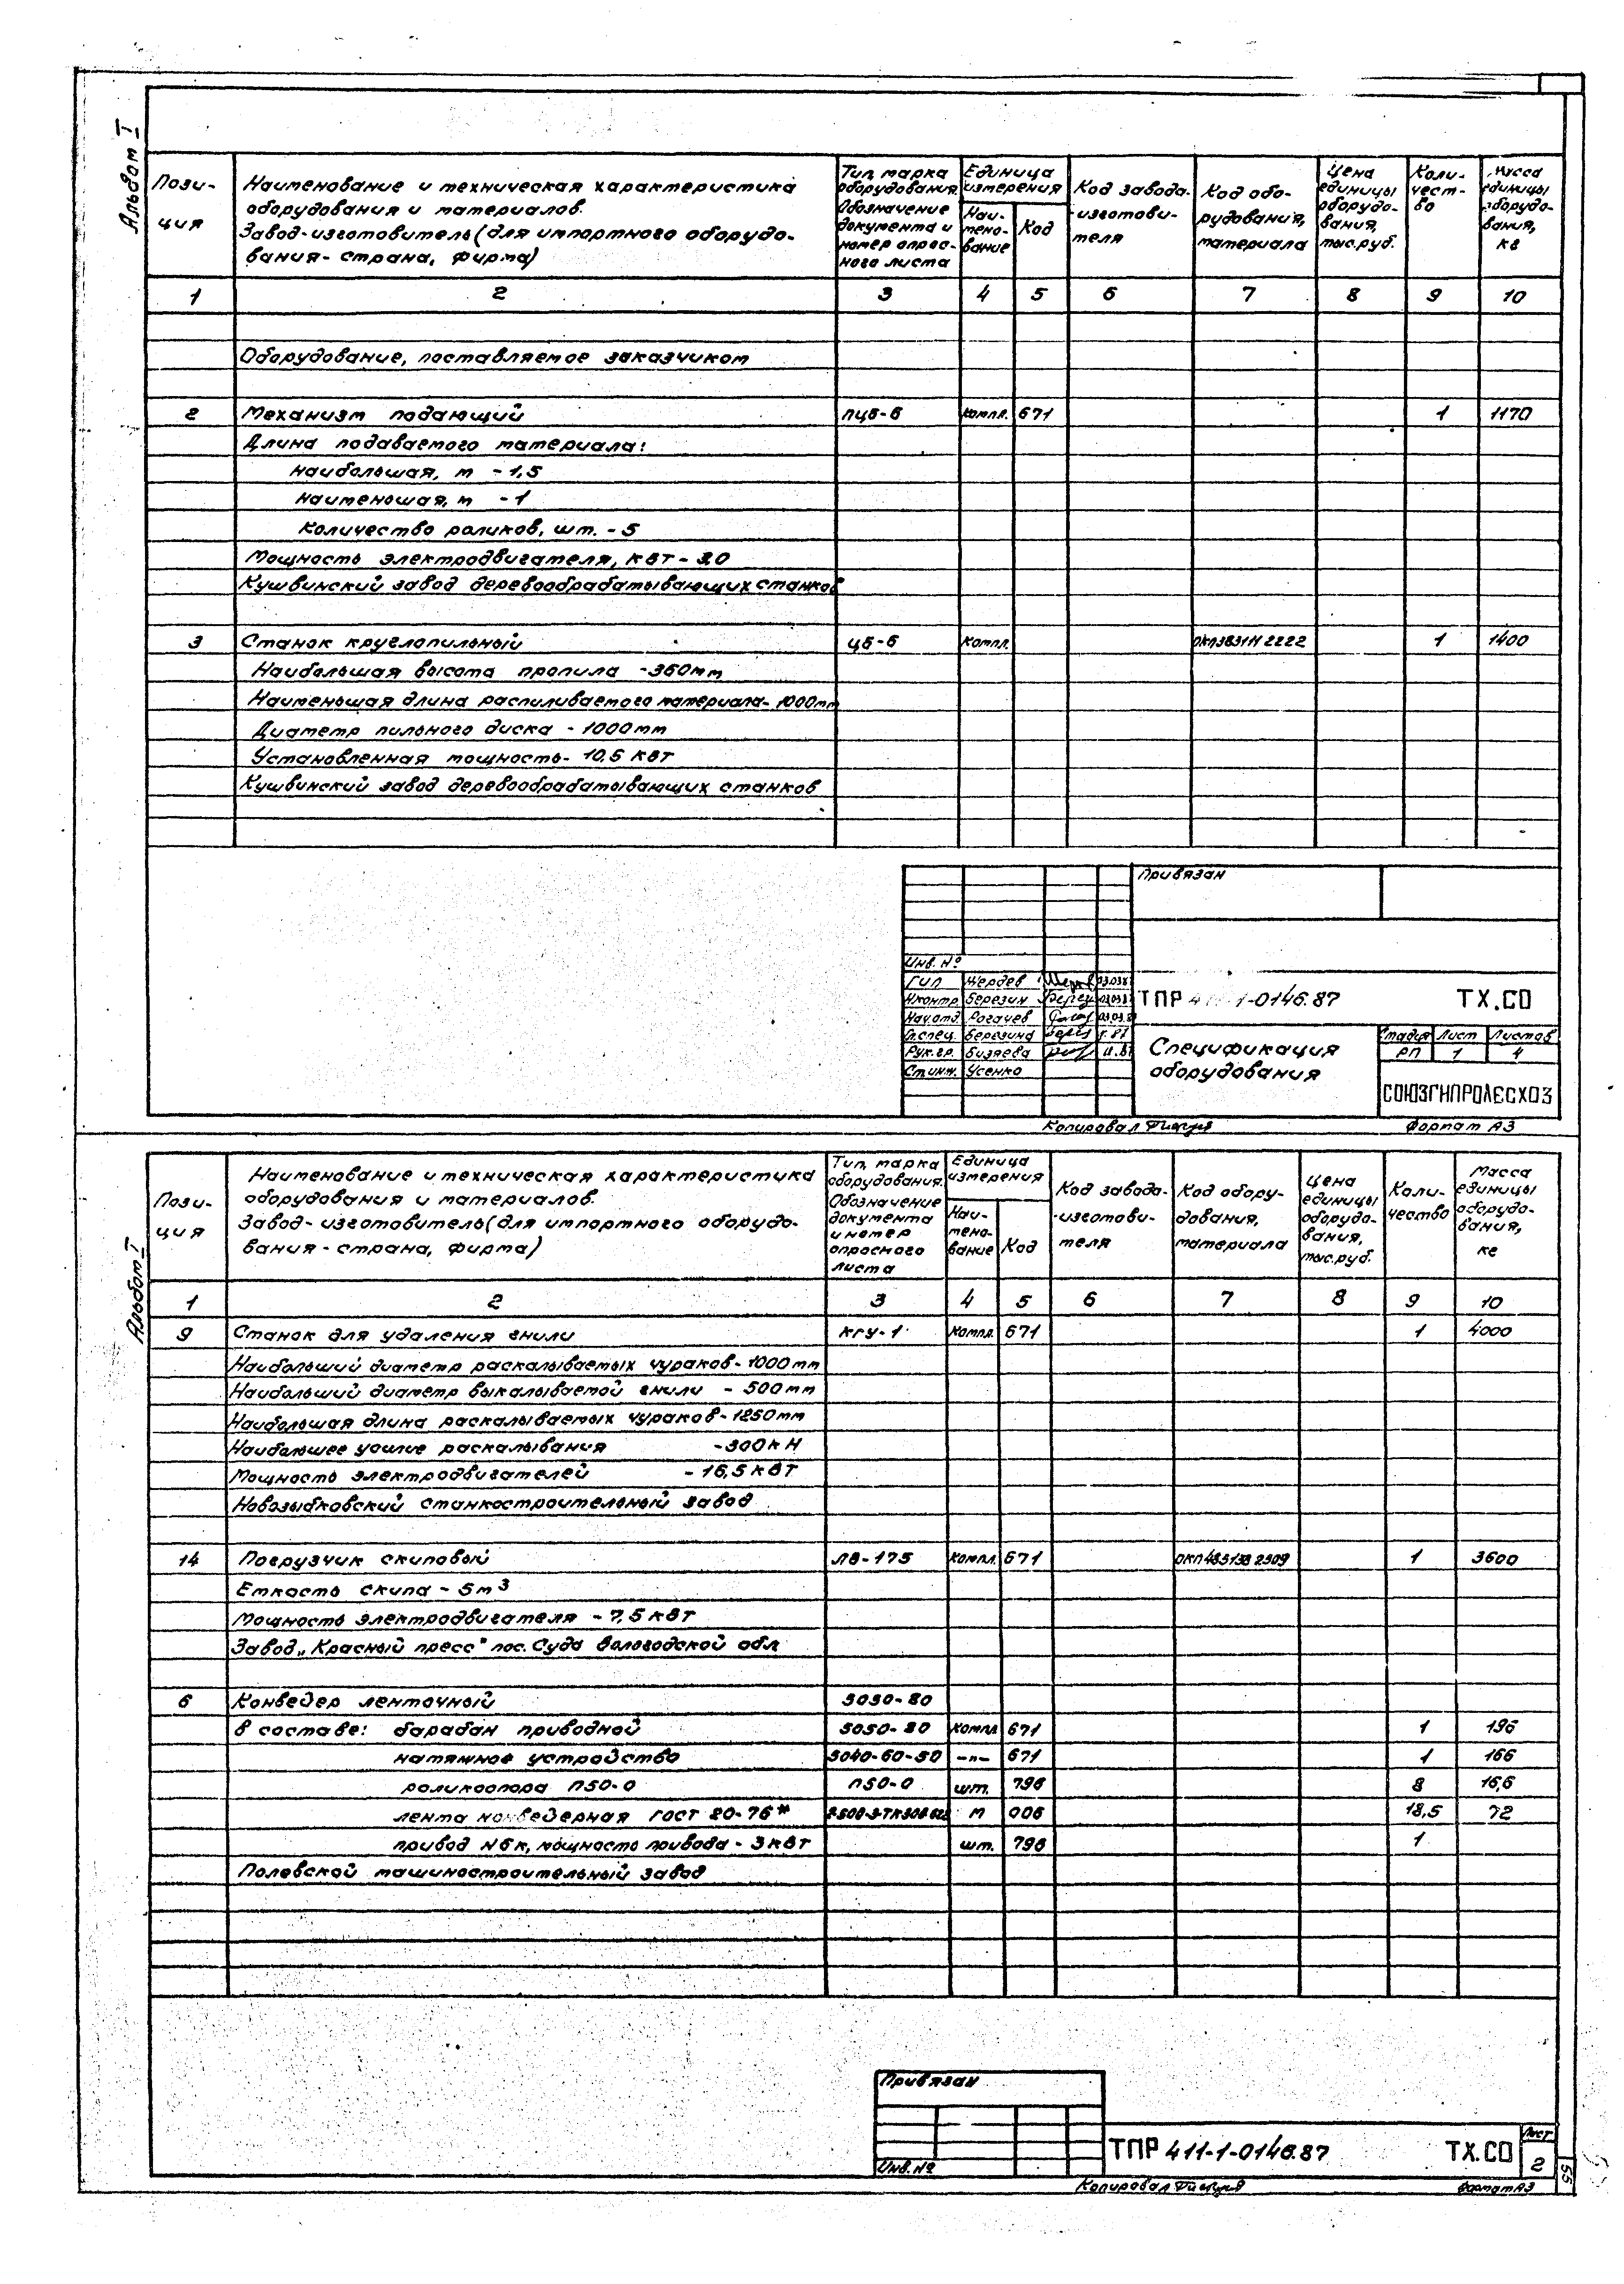 Альбом I
Пози-
ция
Наименование и техническая характеристика
оборудования и материалов.
Завод-изготовитель (для импортного оборудо-
вания - страна, фирма)
Тип, марка
оборудования.
Обозначение
документа и
номер опрос-
ного листа
Единица
измерения
Наи-
мено-
вание
Код
Код завода-
-изготови-
теля
Код обо-
рудования,
материала
Цена
единицы
оборудо-
вания,
тыс.руб.
Коли-
чест-
во
Масса
единицы
оборудо-
вания,
кг
1 2 3 4 5 6 7 8 9 10
Оборудование, поставляемое заказчиком
2 Механизм подающий ПЦ6-6 компл. 671 1 1170
Длина подаваемого материала:
наибольшая, м - 1,5
наименьшая, м - 1
Количество роликов, шт. - 5
Мощность электродвигателя, кВт - 3,0
Кушвинский завод деревообрабатывающих станков
3 Станок круглопильный Ц6-6 Компл. 1 1400
Наибольшая высота пропила - 360мм
Наименьшая длина распиливаемого материала - 1000мм
Диаметр пильного диска - 1000мм
Установленная мощность - 10,5 кВт
Кушвинский завод деревообрабатывающих станков
Привязан
Инв. №
ГИП Жердев
Н.контр. Березин
Нач.отд. Рогачев
Гл.спец. Березина
Рук.гр. Бизяева
Ст.инж. Усенко
ТПР 411-1-0146.87 ТХ.СО
Спецификация
оборудования
Стадия Лист Листов
РП 1 4
СОЮЗГИПРОЛЕСХОЗ
Копировал
Формат А3
Альбом I
Пози-
ция
Наименование и техническая характеристика
оборудования и материалов.
Завод-изготовитель (для импортного оборудо-
вания - страна, фирма)
Тип, марка
оборудования.
Обозначение
документа
и номер
опросного
листа
Единица
измерения
Наи-
мено-
вание
Код
Код завода-
-изготови-
теля
Код обору-
дования,
материала
Цена
единицы
оборудо-
вания,
тыс.руб.
Коли-
чество
Масса
единицы
оборудо-
вания,
кг
1 2 3 4 5 6 7 8 9 10
9 Станок для удаления гнили КГУ-1 Компл. 671 1 4000
Наибольший диаметр раскалываемых чураков - 1000мм
Наибольший диаметр выкалываемой гнили - 500мм
Наибольшая длина раскалываемых чураков - 1250мм
Наибольшее усилие раскалывания - 300кН
Мощность электродвигателей - 16,5 кВт
Новозыбковский станкостроительный завод
14 Погрузчик скиповый ЛВ-175 компл. 671 1 3600
Емкость скипа - 5м³
Мощность электродвигателя - 7,5 кВт
Завод „Красный пресс" пос. Суда Вологодской обл.
6 Конвейер ленточный 5050-80
в составе: барабан приводной 5050-80 компл. 671 1 196
натяжное устройство 5040-60-50 -"- 671 1 166
роликоопора П50-0 П50-0 шт. 796 8 16,6
лента конвейерная ГОСТ 20-76* м 006 18,5 72
привод N6к, мощность привода - 3кВт шт. 796 1
Полевской машиностроительный завод
Привязан
Инв. №
ТПР 411-1-0146.87 ТХ.СО
Лист
2
Копировал
Формат А3
55